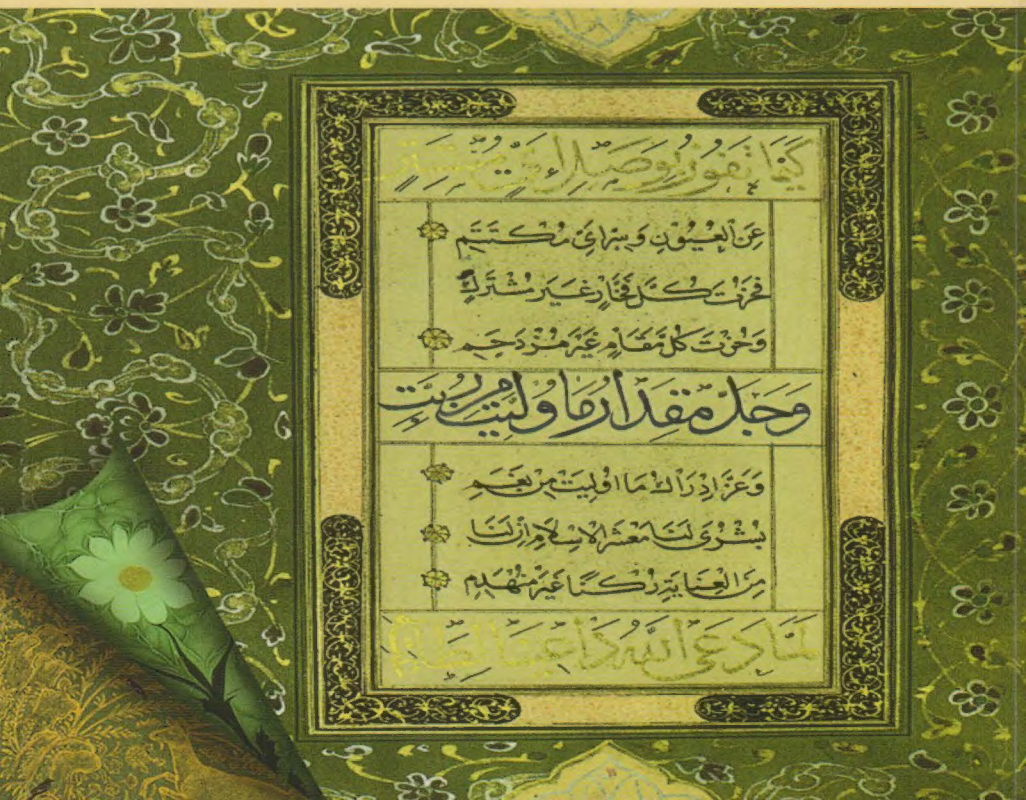 كَيْمَا تَفُوزَ بِوَصْلٍ اَيِّ مُسْتَتِرٍ
عَنِ الْعُيُونِ وَسِرٍّ اَيِّ مُكْتَتَمِ
فَحُزْتَ كُلَّ فَخَارٍ غَيْرَ مُشْتَرَكٍ
وَجُزْتَ كُلَّ مَقَامٍ غَيْرَ مُزْدَحَمِ
وَجَلَّ مِقْدَارُ مَا وُلِّيتَ مِنْ رُتَبٍ
وَعَزَّ اِدْرَاكُ مَا اوُلِيتَ مِنْ نِعَمِ
بُشْرَى لَنَا مَعْشَرَ الْاِسْلَامِ اِنَّ لَنَا
مِنَ الْعِنَايَةِ رُكْنًا غَيْرَ مُنْهَدِمِ
لَمَّا دَعَى اللّٰهُ دَاعِينَا